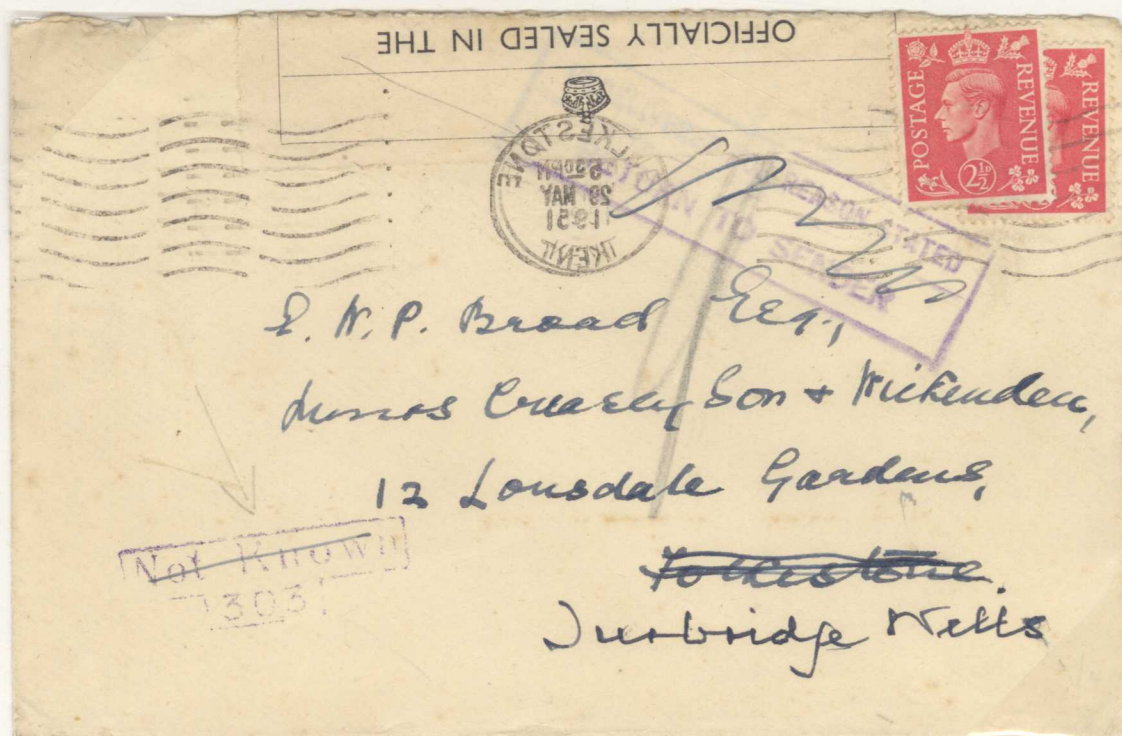 OFFICIALLY SEALED IN THE
POSTAGE REVENUE
2½D
REVENUE
FOLKESTONE
KENT
28 MAY
1951
REASON STATED
RETURN TO SENDER
E. W. P. Broad Esq.,
Messrs Creasey Son & Wickenden,
12 Lonsdale Gardens,
Folkestone.
Tunbridge Wells
Not Known
303